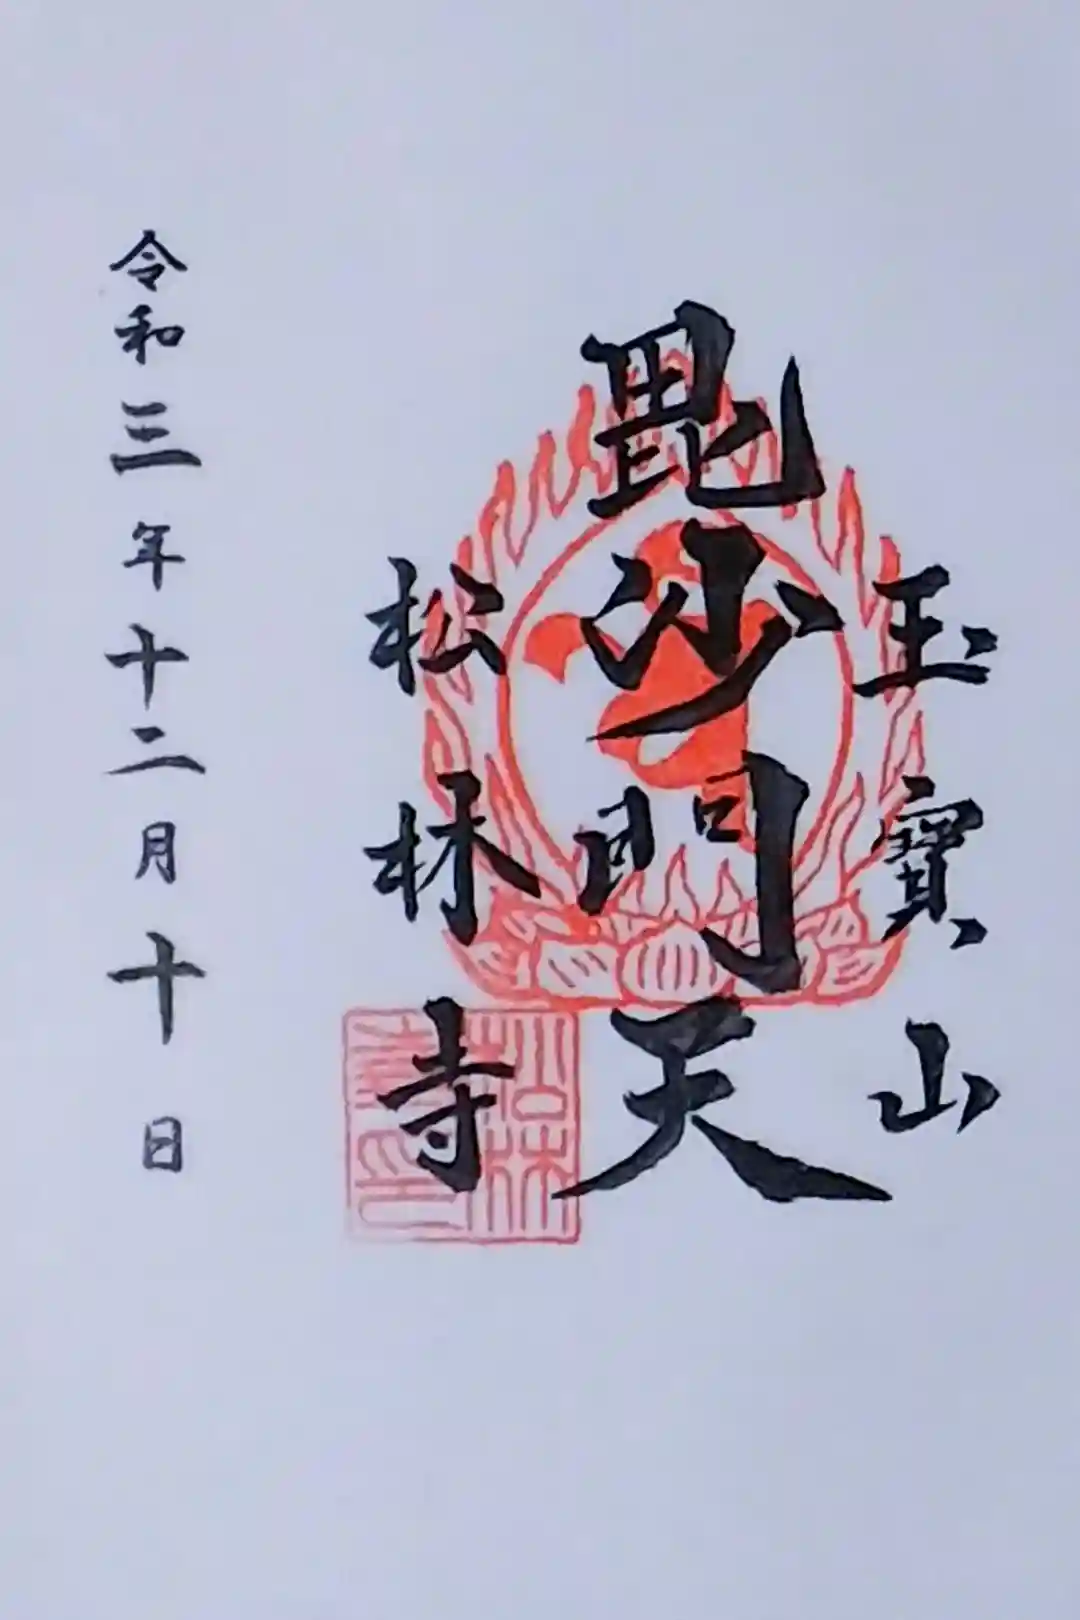 玉寶山
毘沙門天
松林寺
令和三年十二月十日